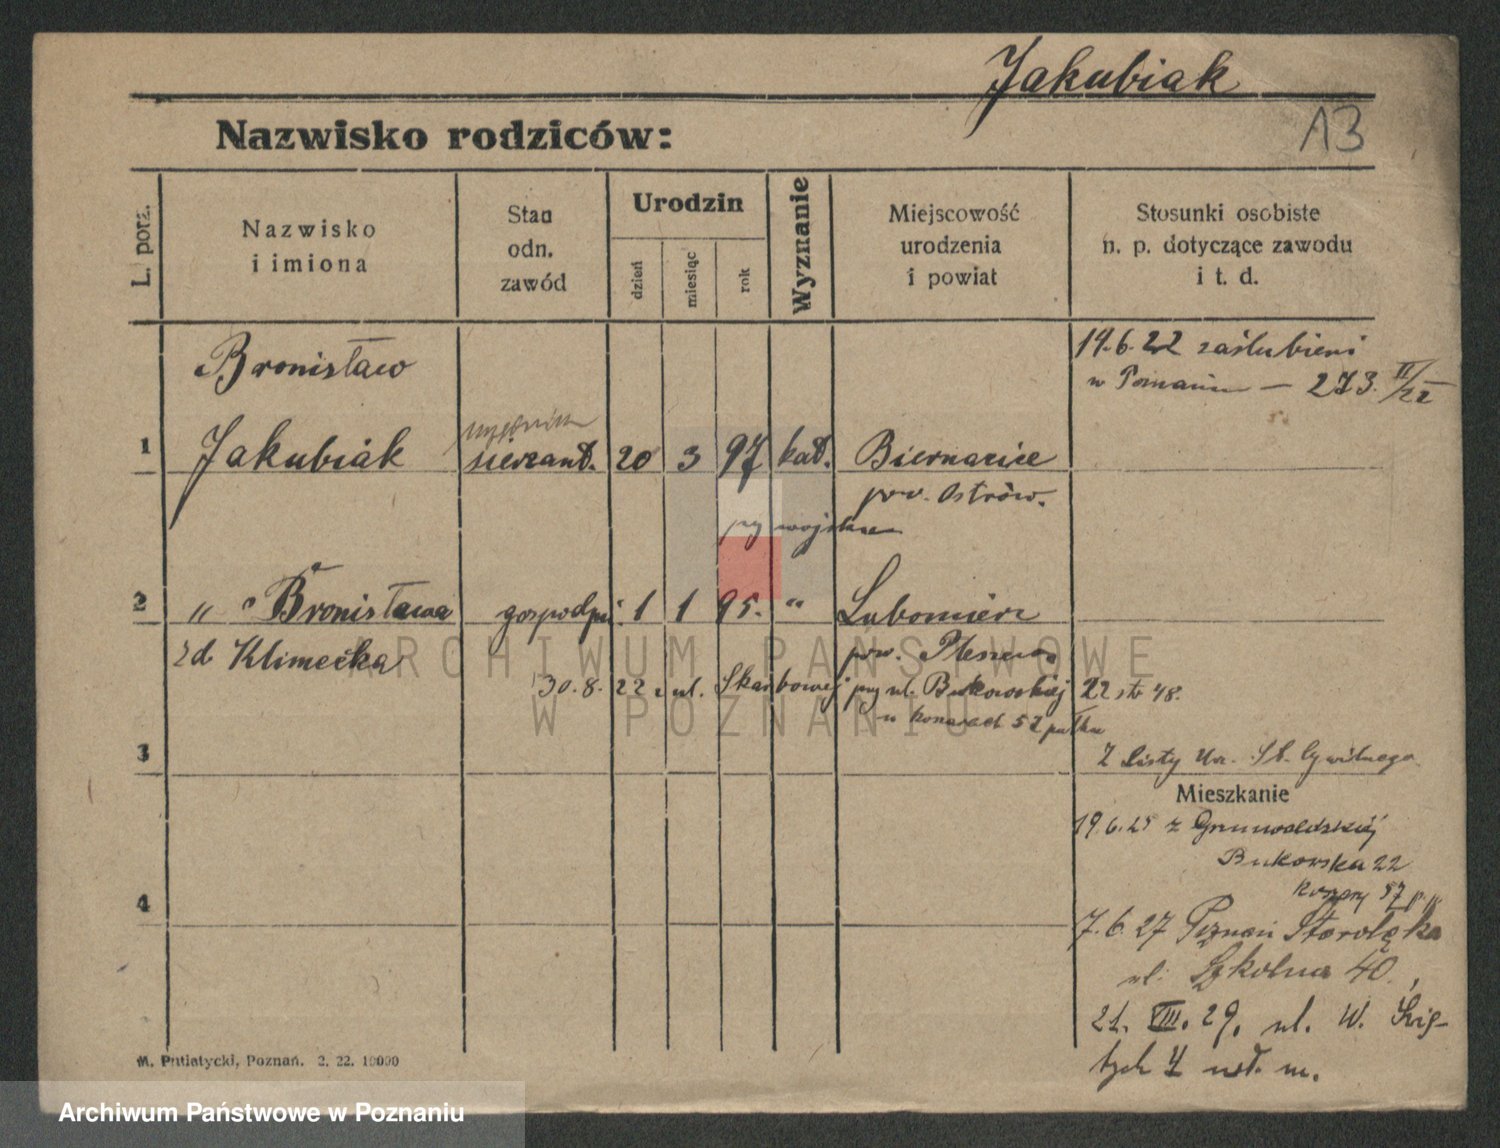 Jakubiak
13
Nazwisko rodziców:
L. porz.
Nazwisko
i imiona
Stan
odn.
zawód
Urodzin
dzień
miesiąc
rok
Wyznanie
Miejscowość
urodzenia
i powiat
Stosunki osobiste
n. p. dotyczące zawodu
i t. d.
Bronisław
19.6.22 zaślubieni
w Poznaniu — 273. II/22
1 Jakubiak sierżant. 20 3 97 kat. Biernacice
pow. Ostrów.
przy wojsku
2 " Bronisława gospodyni 1 1 95. " Lubomierz
zd Klimecka pow. Pleszew
30.8.22 z ul. Skarbowej przy ul. Bukowskiej 22 str 48.
w koszarach 57 pułku
3 Z Listy Urz. St. Cywilnego
Mieszkanie
19.6.25 z Grunwaldzkiej
Bukowska 22
koszary 57 p.
4
7.6.27 Poznań Starołęka
ul. Szkolna 40
21. VIII. 29. ul. W. Świę-
tych 4
M. Putiatycki, Poznań. 2. 22. 10000
ARCHIWUM PAŃSTWOWE
W POZNANIU
Archiwum Państwowe w Poznaniu